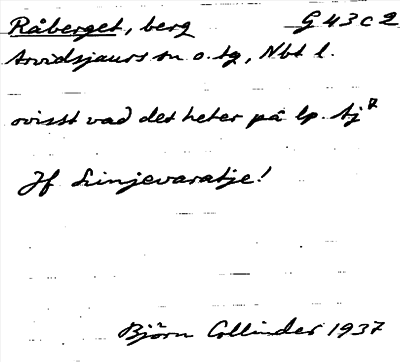 Råberget, berg G 43 c 2
Arvidsjaurs sn o. tg, Nbt l.
ovisst vad det heter på lp.
Jf Linjevaratje!
Björn Collinder 1937